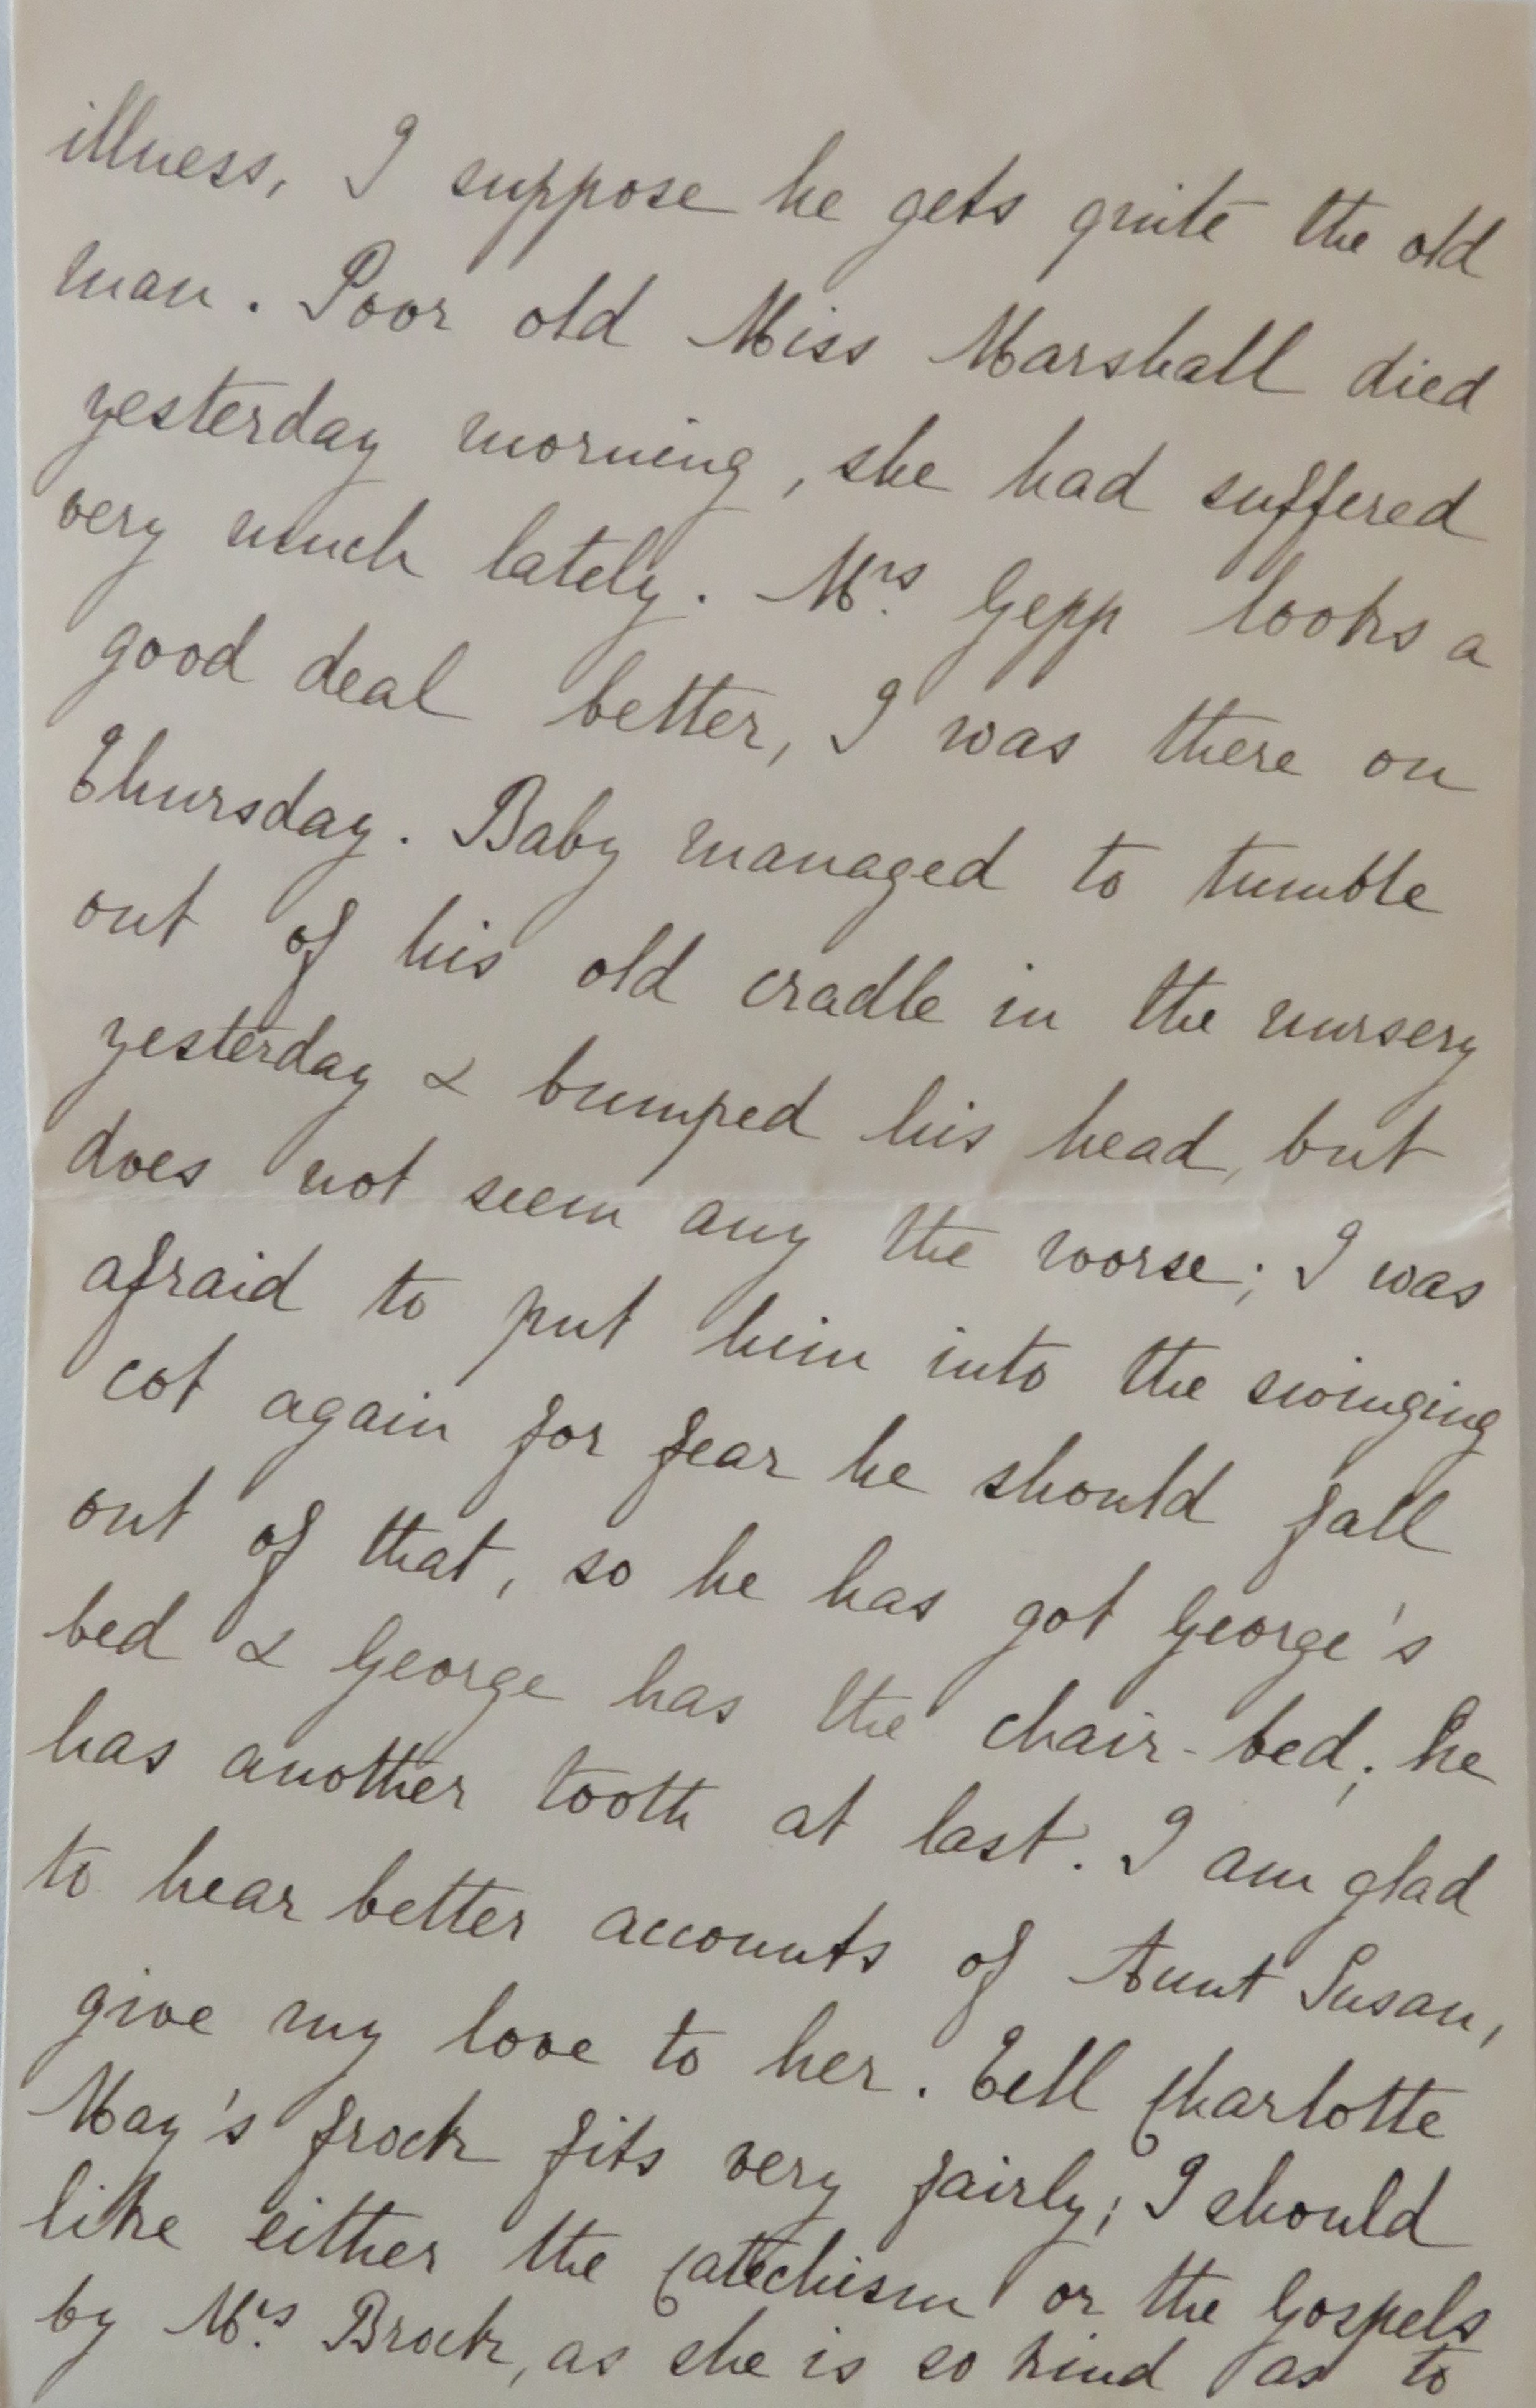 illness, I suppose he gets quite the old
man. Poor old Miss Marshall died
yesterday morning, she had suffered
very much lately. Mrs. Gepp looks a
good deal better, I was there on
Thursday. Baby managed to tumble
out of his old cradle in the nursery
yesterday & bumped his head, but
does not seem any the worse; I was
afraid to put him into the swinging
cot again for fear he should fall
out of that, so he has got George's
bed & George has the chair-bed; he
has another tooth at last. I am glad
to hear better accounts of Aunt Susan,
give my love to her. Tell Charlotte
May's frock fits very fairly; I should
like either the Catechism or the Gospels
by Mrs. Brock, as she is so kind as to